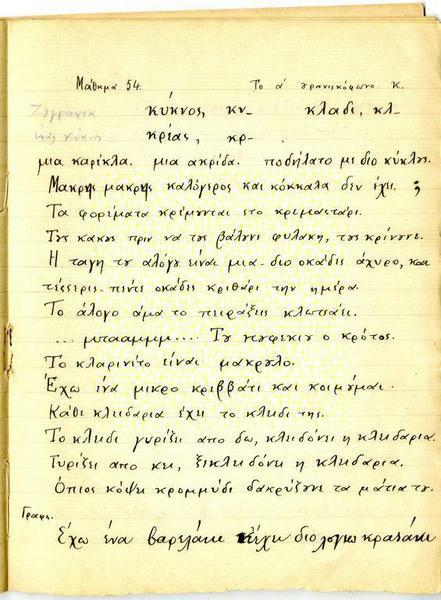 Μάθημα 54. Το α' φρανισκόφωνο κ.
Ζυγραφια κύκνος, κν- κλαδι, κλ-
ενας κύκνος κρέας, κρ-
μια καρέκλα. μια ακρίδα. ποδήλατο με διο κύκλυς.
Μακρης μακρης καλόγερος και κόκκαλα δεν έχει. ;
Τα φορέματα κρέμυνται στο κρεμαστάρι.
Τυς κακυς πριν να τυς βάλυνε φυλακη, τυς κρίνυνε.
Η ταγη τυ αλόγυ είναι μια-διο οκάδες άχυρο, και
τέσσερις-πέντε οκάδες κριθάρι την ημέρα.
Το άλογο άμα το πειράξεις κλωτσάει.
... μπααμμμ .... Τυ ντυφεκιυ ο κρότος.
Το κλαρινέτο είναι μακρυλο.
Έχω ένα μικρο κρεββάτι και κοιμύμαι.
Κάθε κλειδαρια έχει το κλειδι της.
Το κλειδι γυρίζει απο δω, κλειδόνει η κλειδαρια.
Γυρίζει απο κει, ξεκλειδόνει η κλειδαρια.
Όπιος κόψει κρομμύδι δακρύζυνε τα μάτια τυ.
Γραφη.
Έχω ένα βαρελάκι κ έχει διο λογιω κρασάκι